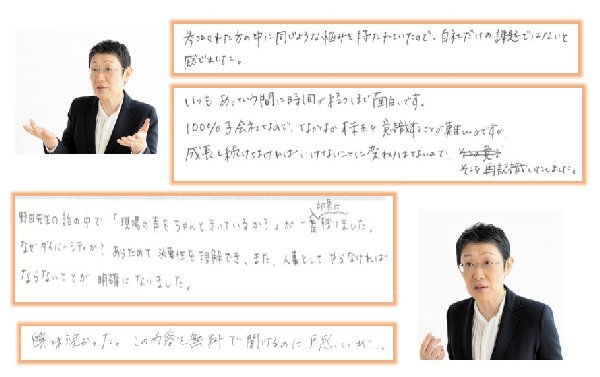 参加された方の中に同じような悩みを持たれていたので、自社だけの課題ではないと
感じました。
いつもあっという間に時間が経つほど面白いです。
100%子会社なので、なかなか株主を意識することが難しいのですが、
成長し続けなければいけないことに変わりはないので、
そこを再認識いたしました。
野田先生の話の中で「現場の声をちゃんときいているか？」が一番印象に残りました。
なぜダイバーシティか？あらためて必要性を理解でき、また、人事としてやらなければ
ならないことが明確になりました。
興味深かった。この内容を無料で聞けるのに戸惑いが…